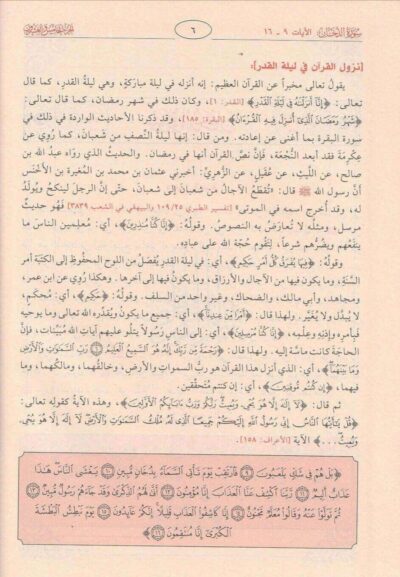 سورة الدخان: الآيات ٩ - ١٦
٦
الجزء الخامس والعشرون
[نزول القرآن في ليلة القدر]:
يقول تعالى مخبراً عن القرآن العظيم: إنه أنزله في ليلة مباركةٍ، وهي ليلةُ القدرِ، كما قال
تعالى: ﴿إِنَّا أَنزَلْنَٰهُ فِي لَيْلَةِ الْقَدْرِ﴾ [القدر: ١]، وكان ذلك في شهر رمضان، كما قال تعالى:
﴿شَهْرُ رَمَضَانَ الَّذِي أُنزِلَ فِيهِ الْقُرْءَانُ﴾ [البقرة: ١٨٥]، وقد ذكرنا الأحاديث الواردة في ذلك في
سورة البقرة بما أغنى عن إعادته. ومن قال: إنها ليلةُ النِّصف من شعبانَ، كما رُوي عن
عِكرمة فقد أبعد النُّجْعَة، فإنَّ نصَّ القرآن أنها في رمضان. والحديثُ الذي رواه عبدُ الله بن
صالح، عن اللَّيث، عن عُقيلٍ، عن الزُّهريِّ: أخبرني عثمان بن محمد بن المُغيرة بن الأخنَس
أنَّ رسول الله ﷺ قال: «تُقطَعُ الآجالُ من شعبانَ إلى شعبانَ، حتَّى إنَّ الرجلَ لينكحُ ويُولَدُ
له، وقد أُخرج اسمه في الموتى» [تفسير الطبري ١٠٩/٢٥ والبيهقي في الشعب ٣٨٣٩] فهُو حديثٌ
مرسل، ومثلُه لا تُعارَضُ به النصوصُ. وقولُهُ: ﴿إِنَّا كُنَّا مُنذِرِينَ﴾، أي: مُعلِمين الناسَ ما
ينفَعُهم ويضُرُّهم شرعاً، لتقُومَ حُجّة الله على عباده.
وقولُه: ﴿فِيهَا يُفْرَقُ كُلُّ أَمْرٍ حَكِيمٍ﴾، أي: في ليلة القدرِ يُفصَلُ من اللوح المحفُوظِ إلى الكتَبة أمر
السَّنَةِ، وما يكون فيها من الآجال والأرزاق، وما يكونُ فيها إلى آخرها. وهكذا رُوي عن ابن عمر،
ومجاهد، وأبي مالك، والضحاك، وغير واحدٍ من السلف. وقولُهُ: ﴿حَكِيمٍ﴾، أي: مُحكَمٍ،
لا يُبدَّل ولا يُغيَّر، ولهذا قال: ﴿أَمْرًا مِّنْ عِندِنَا﴾، أي: جميع ما يكونُ ويُقدِّرُه الله تعالى وما يوحيه
فبأمرِه وإذنِه وعِلْمِه، ﴿إِنَّا كُنَّا مُرْسِلِينَ﴾، أي: إلى الناسِ رسولاً يتلُو عليهم آيات الله مُبيِّنات، فإنَّ
الحاجة كانت ماسَّة إليه. ولهذا قال: ﴿رَحْمَةً مِّن رَّبِّكَ إِنَّهُ هُوَ السَّمِيعُ الْعَلِيمُ ۝ رَبِّ السَّمَٰوَٰتِ وَالْأَرْضِ
وَمَا بَيْنَهُمَا﴾، أي: الذي أنزل هذا القرآن هو ربُّ السمواتِ والأرضِ، وخالقُهما، ومالكُهما، وما
فيهما، ﴿إِن كُنتُم مُّوقِنِينَ﴾، أي: إن كنتم متحقِّقين.
ثم قال: ﴿لَا إِلَٰهَ إِلَّا هُوَ يُحْيِۦ وَيُمِيتُ رَبُّكُمْ وَرَبُّ ءَابَائِكُمُ الْأَوَّلِينَ﴾، وهذه الآية كقوله تعالى:
﴿قُلْ يَٰأَيُّهَا النَّاسُ إِنِّي رَسُولُ اللَّهِ إِلَيْكُمْ جَمِيعًا الَّذِي لَهُ مُلْكُ السَّمَٰوَٰتِ وَالْأَرْضِ لَا إِلَٰهَ إِلَّا هُوَ يُحْيِۦ
وَيُمِيتُ...﴾ الآية [الأعراف: ١٥٨].
﴿بَلْ هُمْ فِي شَكٍّ يَلْعَبُونَ ۝٩ فَارْتَقِبْ يَوْمَ تَأْتِي السَّمَاءُ بِدُخَانٍ مُّبِينٍ ۝١٠ يَغْشَى النَّاسَ هَٰذَا
عَذَابٌ أَلِيمٌ ۝١١ رَّبَّنَا اكْشِفْ عَنَّا الْعَذَابَ إِنَّا مُؤْمِنُونَ ۝١٢ أَنَّىٰ لَهُمُ الذِّكْرَىٰ وَقَدْ جَاءَهُمْ رَسُولٌ مُّبِينٌ ۝١٣
ثُمَّ تَوَلَّوْا عَنْهُ وَقَالُوا مُعَلَّمٌ مَّجْنُونٌ ۝١٤ إِنَّا كَاشِفُوا الْعَذَابِ قَلِيلًا إِنَّكُمْ عَائِدُونَ ۝١٥ يَوْمَ نَبْطِشُ الْبَطْشَةَ
الْكُبْرَىٰ إِنَّا مُنتَقِمُونَ ۝١٦﴾